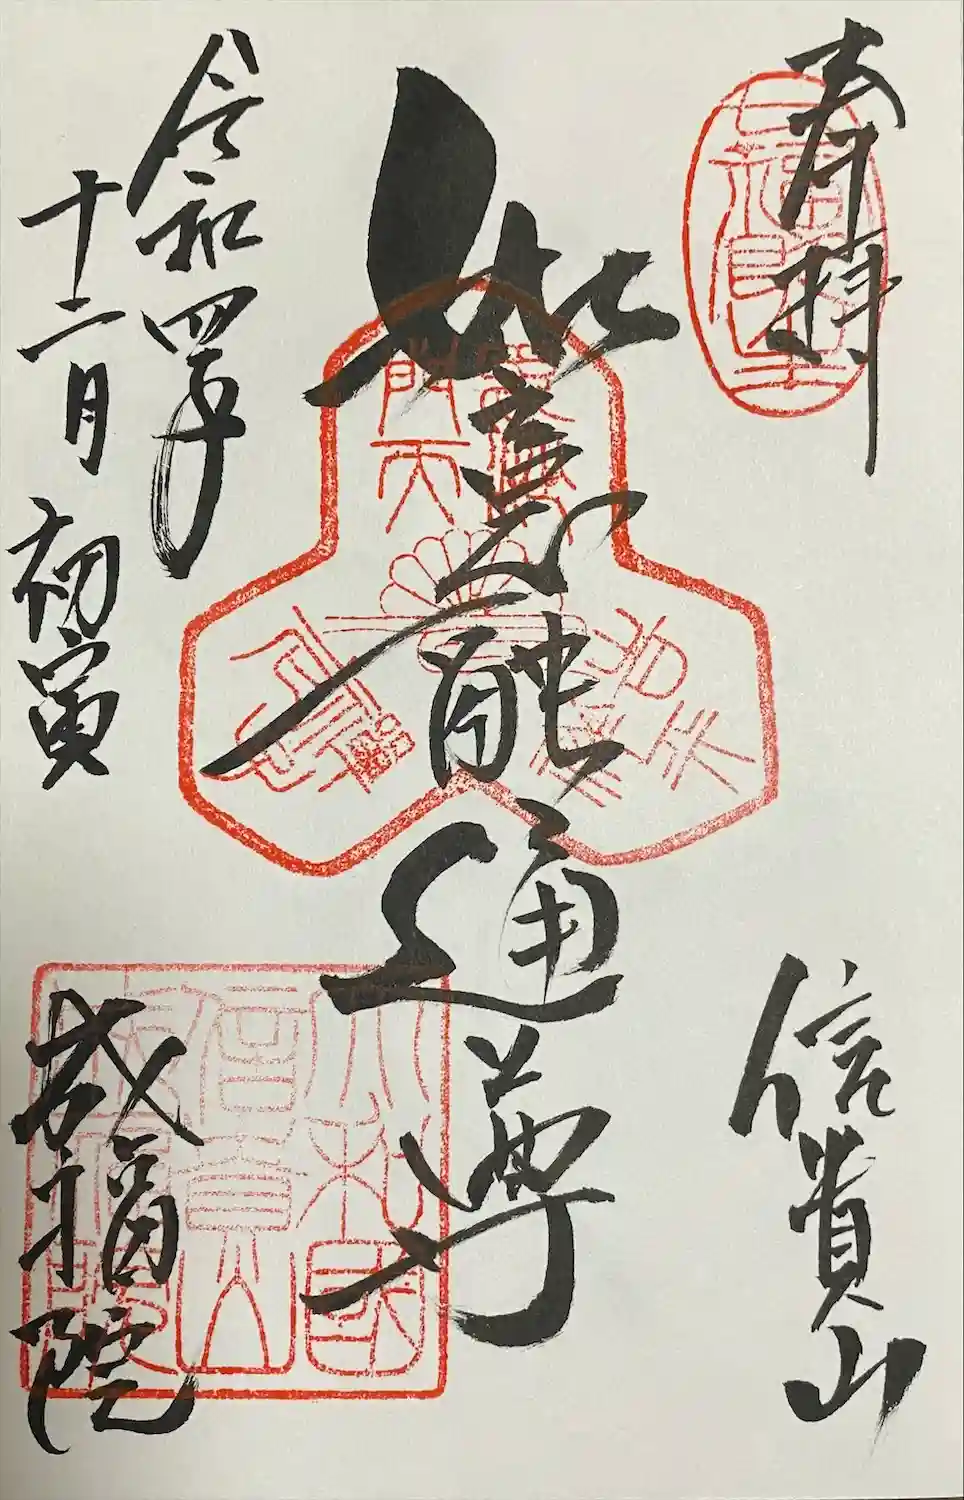 奉拝
信貴山
如意融通尊
令和四年
十二月 初寅
成福院
大和國
信貴山
成福院